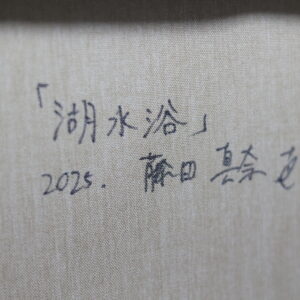 「湖水浴」
2025. 藤田 真奈